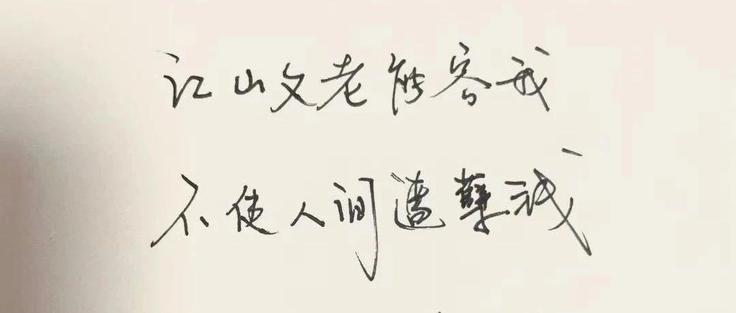 江山父老能容我
不使人间遭孽钱